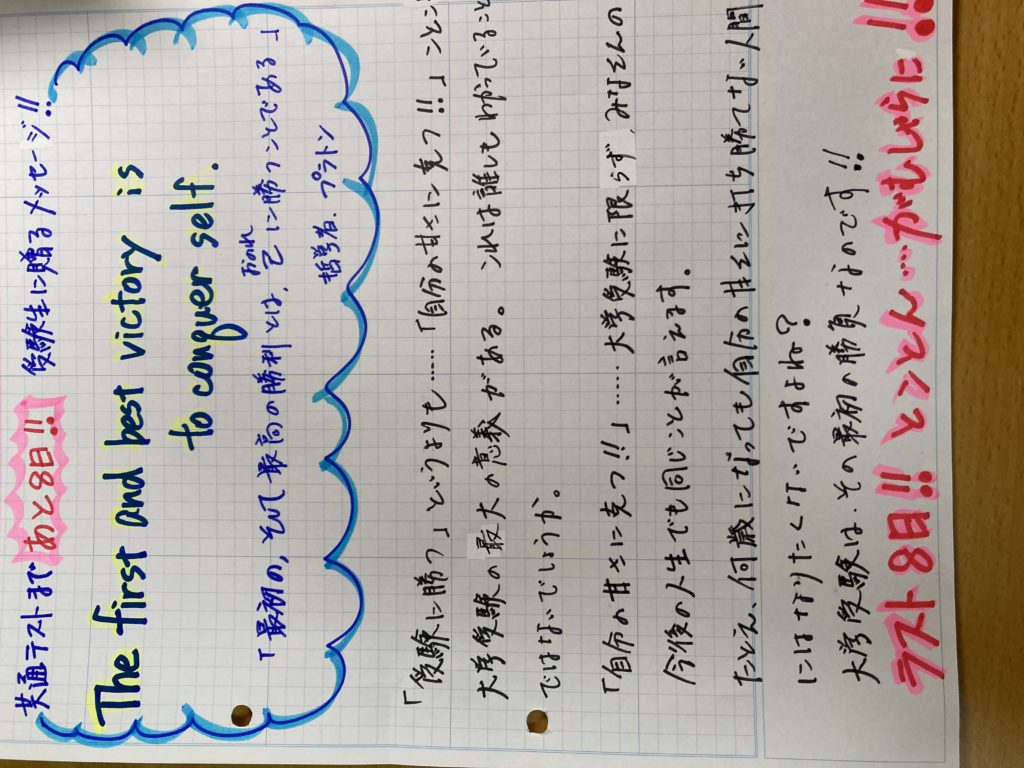 共通テストまで あと8日!! 受験生に贈るメッセージ!!
The first and best victory is
to conquer self.
「最初の、そして最高の勝利とは、己に勝つことである」
おのれ
哲学者、プラトン
「受験に勝つ」というよりも……「自分の甘さに克つ!!」ことに
大学受験の最大の意義がある。これは誰しもわかっていること
ではないでしょうか。
「自分の甘さに克つ!!」…… 大学受験に限らず、みなさんの
今後の人生でも同じことが言えます。
たとえ、何歳になっても自分の甘さに打ち勝てない人間
にはなりたくないですよね?
大学受験は、その最初の勝負なのです!!
ラスト8日!! とことん……がむしゃらに!!